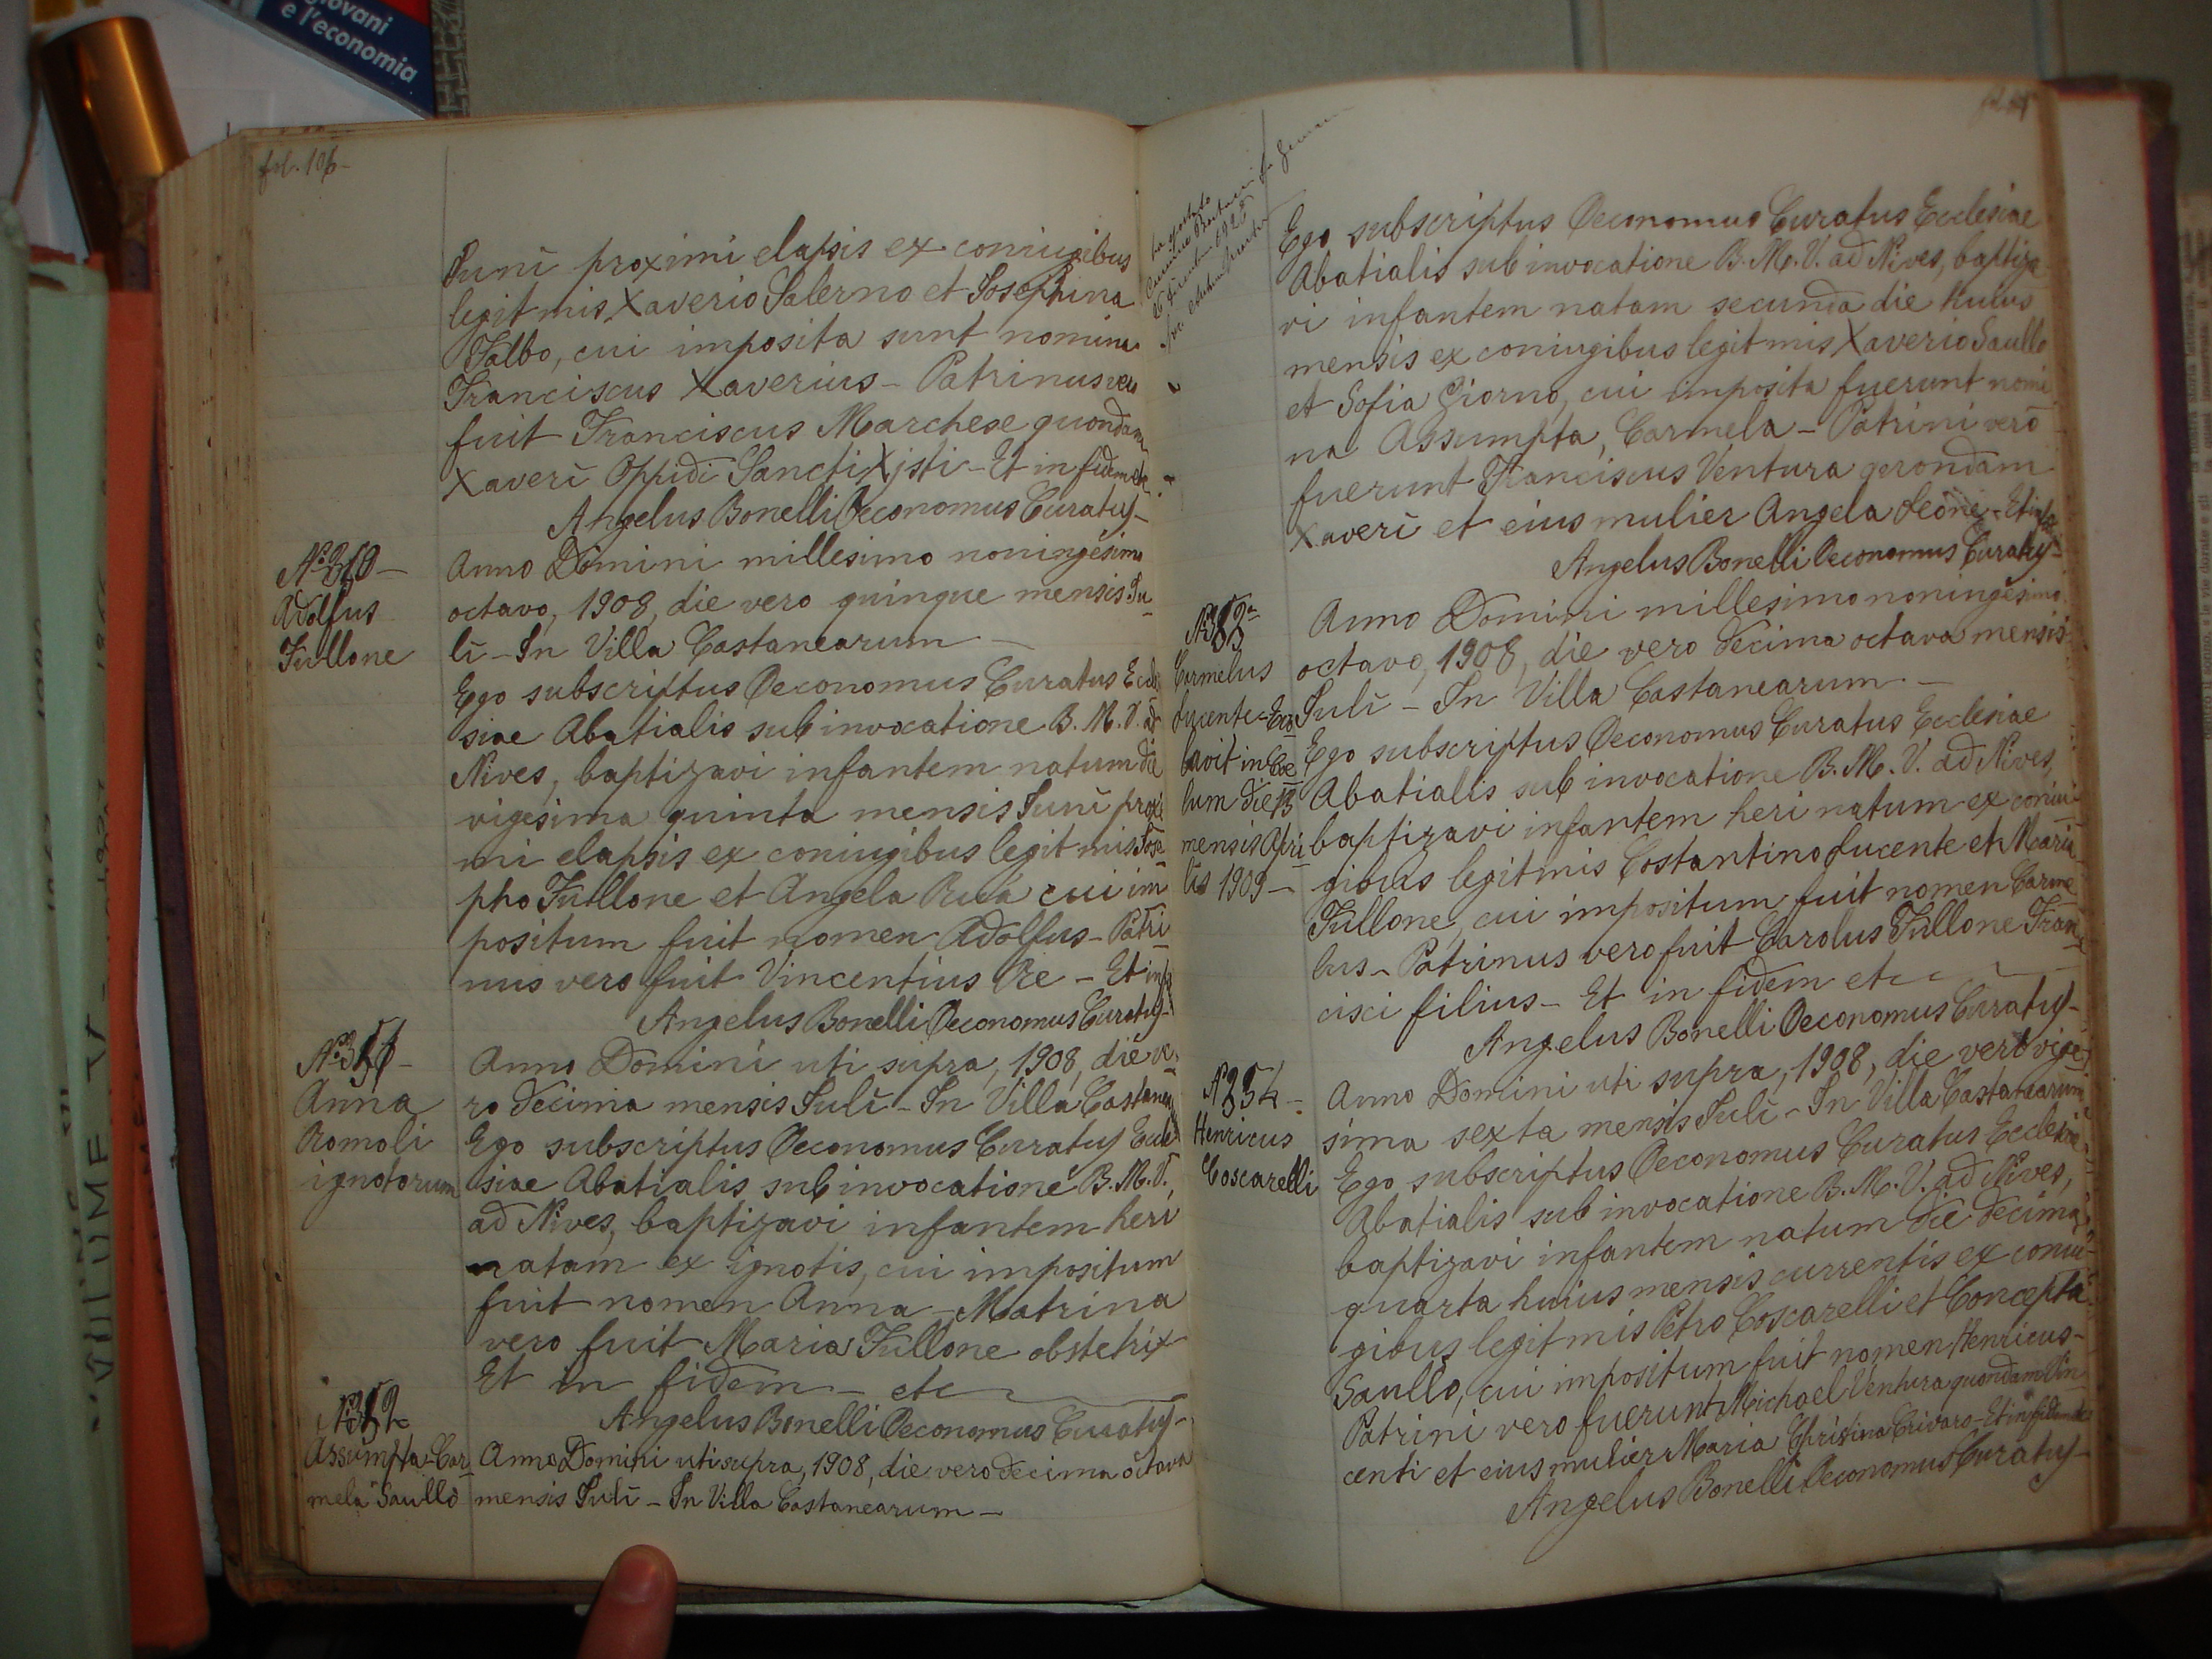 giovani
e l'economia
fol. 106-
Junī proximi elapsis ex coniugibus
legitmis Xaverio Salerno et Josephina
Talbo, cui imposita sunt nomina
Franciscus Xaverius - Patrinus vero
fuit Franciscus Marchese quondam
Xaverī Oppidi Sancti Xjsti - Et in fidem etc
Angelus Bonelli Oeconomus Curatus -
Adolfus
Fullone
Anno Domini millesimo noningesimo
octavo, 1908, die vero quinque mensis Ju
lī - In Villa Castanearum
Ego subscriptus Oeconomus Curatus Eccle
siae Abatialis sub invocatione B. M. V. ad
Nives, baptizavi infantem natum die
vigesima quinta mensis Junī proxi
mi elapsis ex coniugibus legitmis Jose
pho Fullone et Angela Ruà cui im
positum fuit nomen Adolfus - Patri
nus vero fuit Vincentius Re - Et in fi
Angelus Bonelli Oeconomus Curatus -
Anna
Romoli
ignotorum
Anno Domini uti supra, 1908, die ve
ro decima mensis Julī - In Villa Castanea
Ego subscriptus Oeconomus Curatus Eccle
siae Abatialis sub invocatione B. M. V.
ad Nives, baptizavi infantem heri
natam ex ignotis, cui impositum
fuit nomen Anna - Matrina
vero fuit Maria Fullone obstetrix
Et in fidem - etc
Angelus Bonelli Oeconomus Curatus -
Assumpta - Car
mela Saullo
Anno Domini uti supra, 1908, die vero decima octava
mensis Julī - In Villa Castanearum -
Ego subscriptus Oeconomus Curatus Ecclesiae
Abatialis sub invocatione B. M. V. ad Nives, baptiza
vi infantem natam secunda die huius
mensis ex coniugibus legitmis Xaverio Saullo
et Sofia Giorno, cui imposita fuerunt nomi
na Assumpta, Carmela - Patrini vero
fuerunt Franciscus Ventura qerondam
Xaverī et eius mulier Angela Leone - Et in fi
Angelus Bonelli Oeconomus Curatus -
Carmelus
Lucente - Evo
lavit in Coe
lum die 13
mensis Apri
lis 1909 -
Anno Domini millesimo noningesimo
octavo, 1908, die vero decima octava mensis
Julī - In Villa Castanearum -
Ego subscriptus Oeconomus Curatus Ecclesiae
Abatialis sub invocatione B. M. V. ad Nives,
baptizavi infantem heri natum ex coniu
gibus legitmis Costantino Lucente et Maria
Fullone, cui impositum fuit nomen Carme
lus - Patrinus vero fuit Carolus Fullone Fran
cisci filius - Et in fidem etc
Angelus Bonelli Oeconomus Curatus -
N 354 -
Henricus
Coscarelli
Anno Domini uti supra, 1908, die vero vige
sima sexta mensis Julī - In Villa Castanearum
Ego subscriptus Oeconomus Curatus Ecclesiae
Abatialis sub invocatione B. M. V. ad Nives,
baptizavi infantem natum die decima
quarta huius mensis currentis ex coniu
gibus legitmis Petro Coscarelli et Concepta
Saullo, cui impositum fuit nomen Henricus -
Patrini vero fuerunt Michael Ventura quondam Vin
centi et eius mulier Maria Christina Crivaro - Et in fidem etc
Angelus Bonelli Oeconomus Curatus -